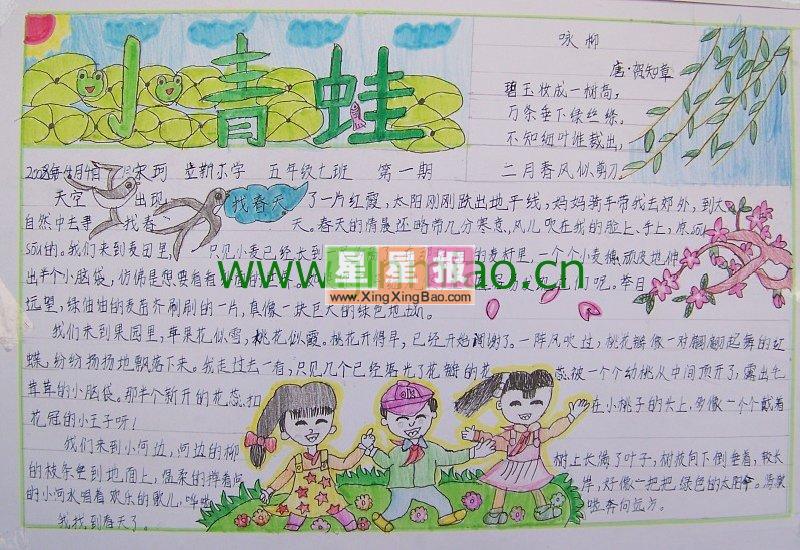 小青蛙
咏柳
唐·贺知章
碧玉妆成一树高,
万条垂下绿丝绦。
不知细叶谁裁出,
二月春风似剪刀。
五年级七班 第一期
找春天
天空 出现 了一片红霞,太阳刚刚跃出地平线,妈妈骑车带我去郊外,到大
自然中去寻 找春 天。春天的清晨还略带几分寒意,风儿吹在我的脸上、手上,凉
的。我们来到麦田里, 只见小麦已经长到 麦秆里,一个个小麦穗顽皮地伸
出半个小脑袋,仿佛是想要看看 呢。举目
远望,绿油油的麦苗齐刷刷的一片,真像一块巨大的绿色地毯。
我们来到果园里,苹果花似雪,桃花似霞。桃花开得早,已经开始凋谢了。一阵风吹过,桃花瓣像一对翩翩起舞的红
蝶,纷纷扬扬地飘落下来。我走过去一看,只见几个已经落光了花瓣的花 蕊被一个个幼桃从中间顶开了,露出毛
茸茸的小脑袋。那半个新开的花蕊扣 在小桃子的头上,多像一个个戴着
花冠的小王子呀!
我们来到小河边,河边的柳 树上长满了叶子,树枝向下倒垂着,较长
的枝条垂到地面上,温柔的撑着 岸,好像一把把绿色的太阳伞。
的小河水唱着欢乐的歌儿,哗 啦奔向远方。
我找到春天了。
www. bao.cn
星星报
www.XingXingBao.com